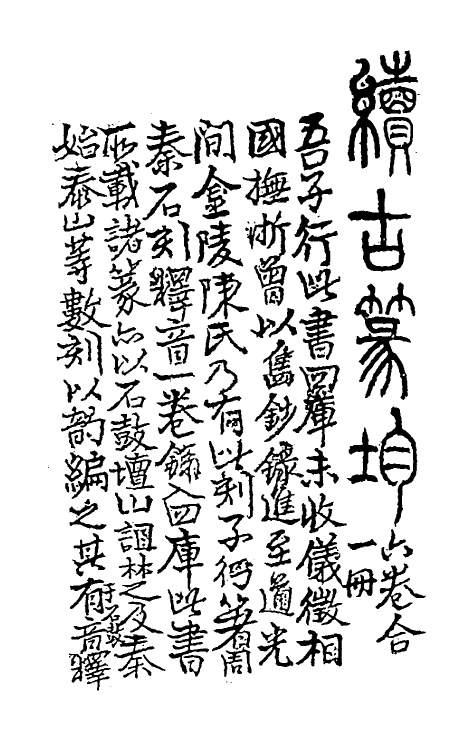 續古篆韻六卷合一冊
吾子行此書四庫未收儀徵相
國撫浙曾以舊鈔錄進至道光
間金陵陳氏乃有此刻子行著周
秦石刻釋音一卷錄入四庫此書
所載諸篆亦以石鼓壇山詛楚及秦
始泰山等數刻以韵編之其有音釋